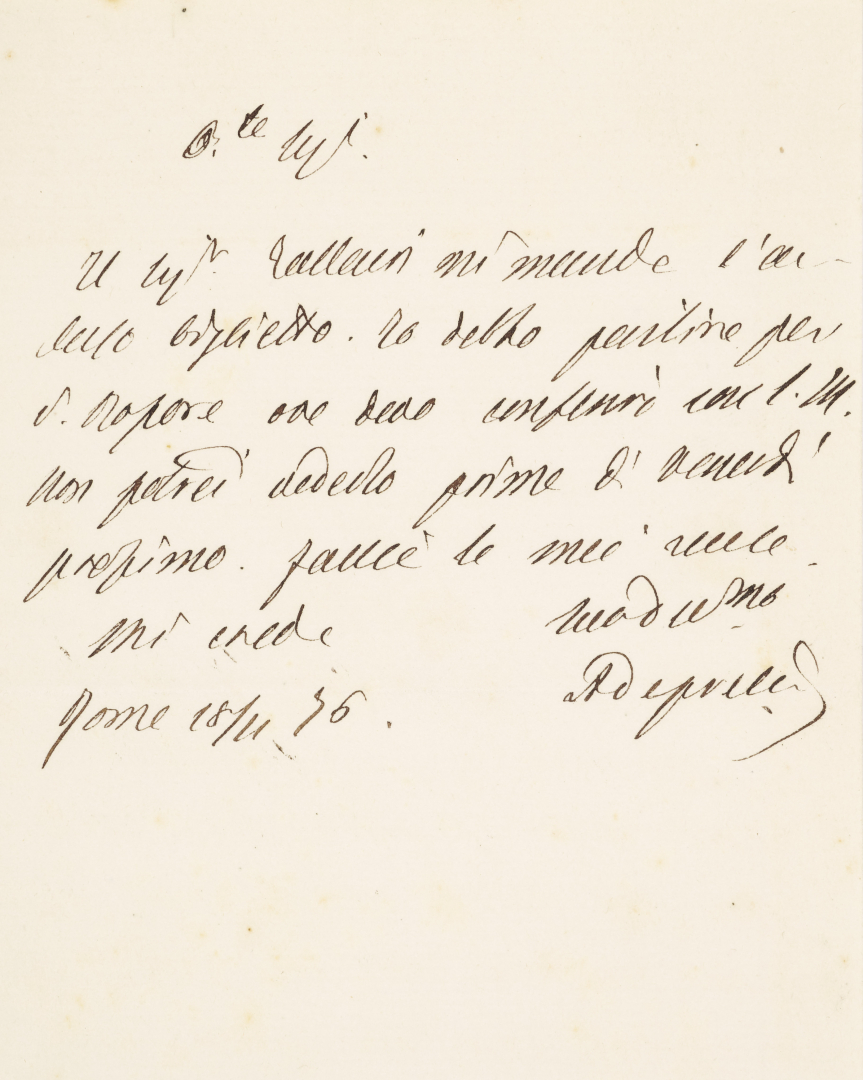 Il Sig.r mi manda l'ac-
cluso biglietto. Io debbo partire per
S. Rossore ove devo conferire con S. M.
Non potrei vederlo prima di venerdì
prossimo. Faccia le mie scuse
Mi creda suo dev.mo
ADepretis
Roma 18/11 76.